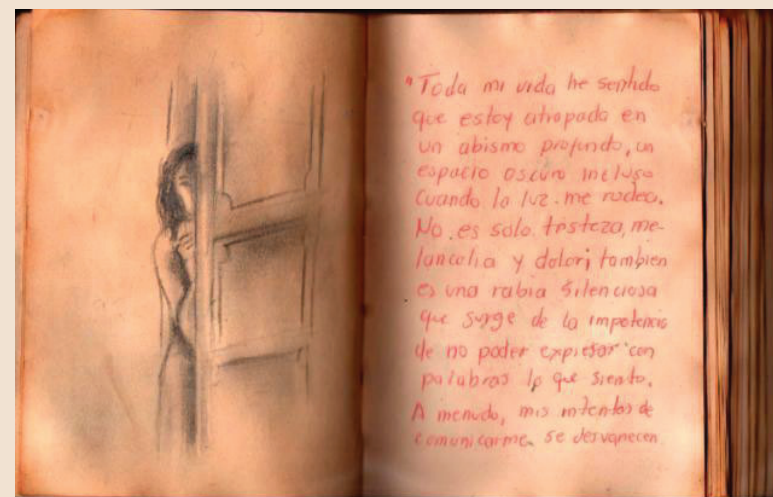 "Toda mi vida he sentido
que estoy atrapado en
un abismo profundo, un
espacio oscuro incluso
cuando la luz me rodea.
No es solo tristeza, me-
lancolia y dolor; tambien
es una rabia silenciosa
que surge de la impotencia
de no poder expresar con
palabras lo que siento.
A menudo, mis intentos de
comunicarme se desvanecen